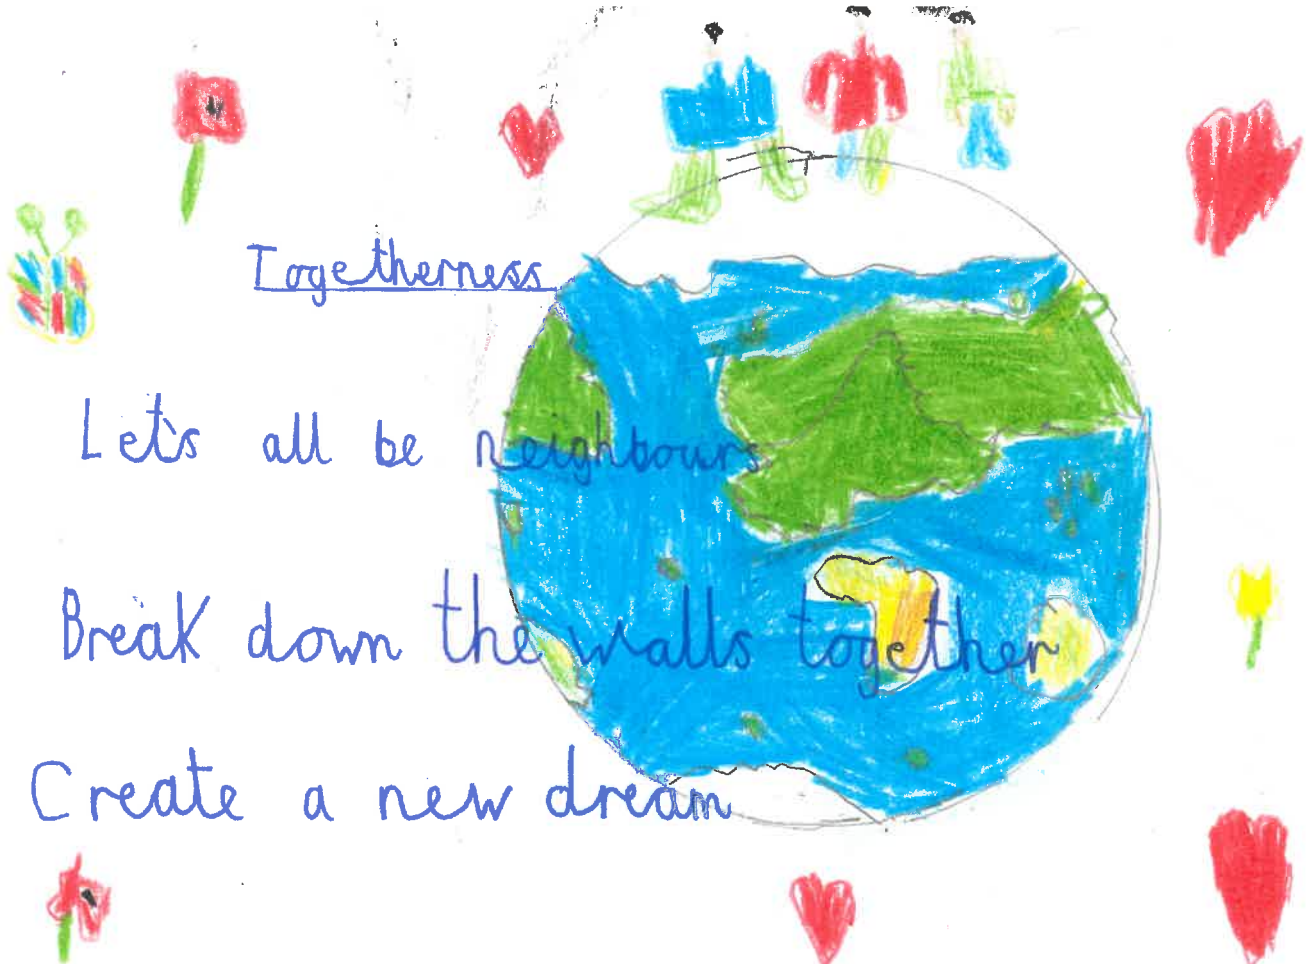 Togetherness
Let's all be neighbours
Break down the walls together
Create a new dream